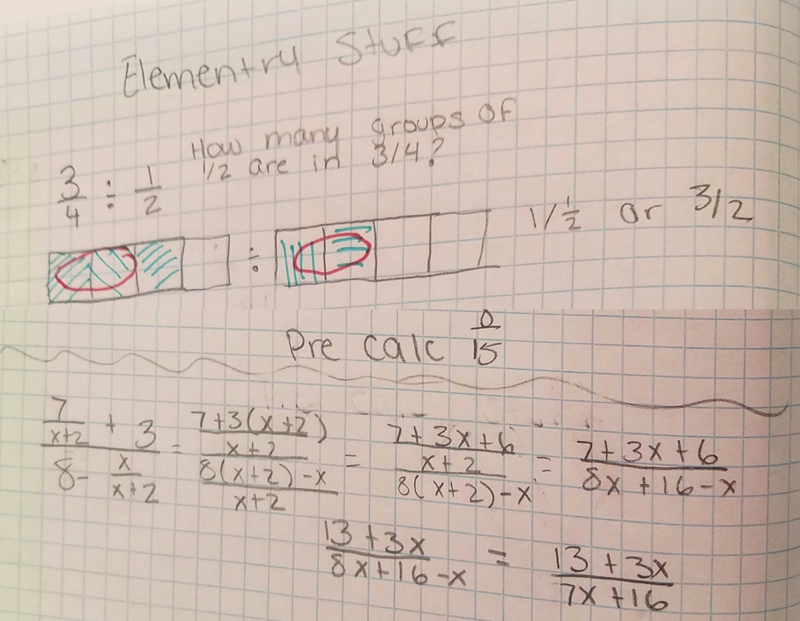 Elementry Stuff
How many groups of
3/4 ÷ 1/2 1/2 are in 3/4?
÷ 1/1/2 or 3/2
Pre Calc 0/15
(7/(x+2) + 3)/(8 - x/(x+2)) = ((7+3(x+2))/(x+2))/((8(x+2)-x)/(x+2)) = ((7+3x+6)/(x+2))/(8(x+2)-x) = (7+3x+6)/(8x+16-x)
(13+3x)/(8x+16-x) = (13+3x)/(7x+16)